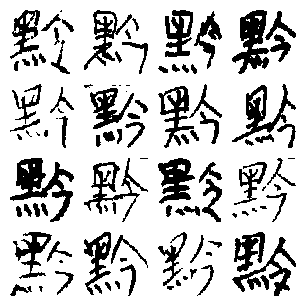 黔黔黔黔
黔黔黔黔
黔黔黔黔
黔黔黔黔